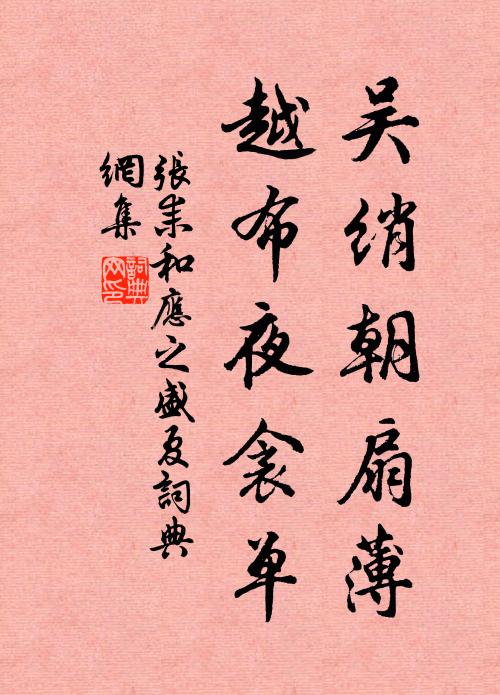 吴绡朝扇薄
越布夜衾单
張耒和應之盛夏詞典
網集
詞典
网印